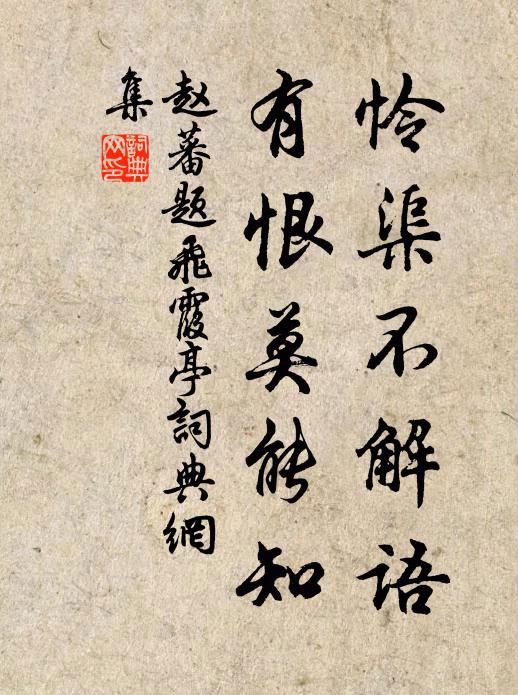 怜渠不解语
有恨莫能知
赵蕃题飞霞亭詞典網
集
詞典
网印